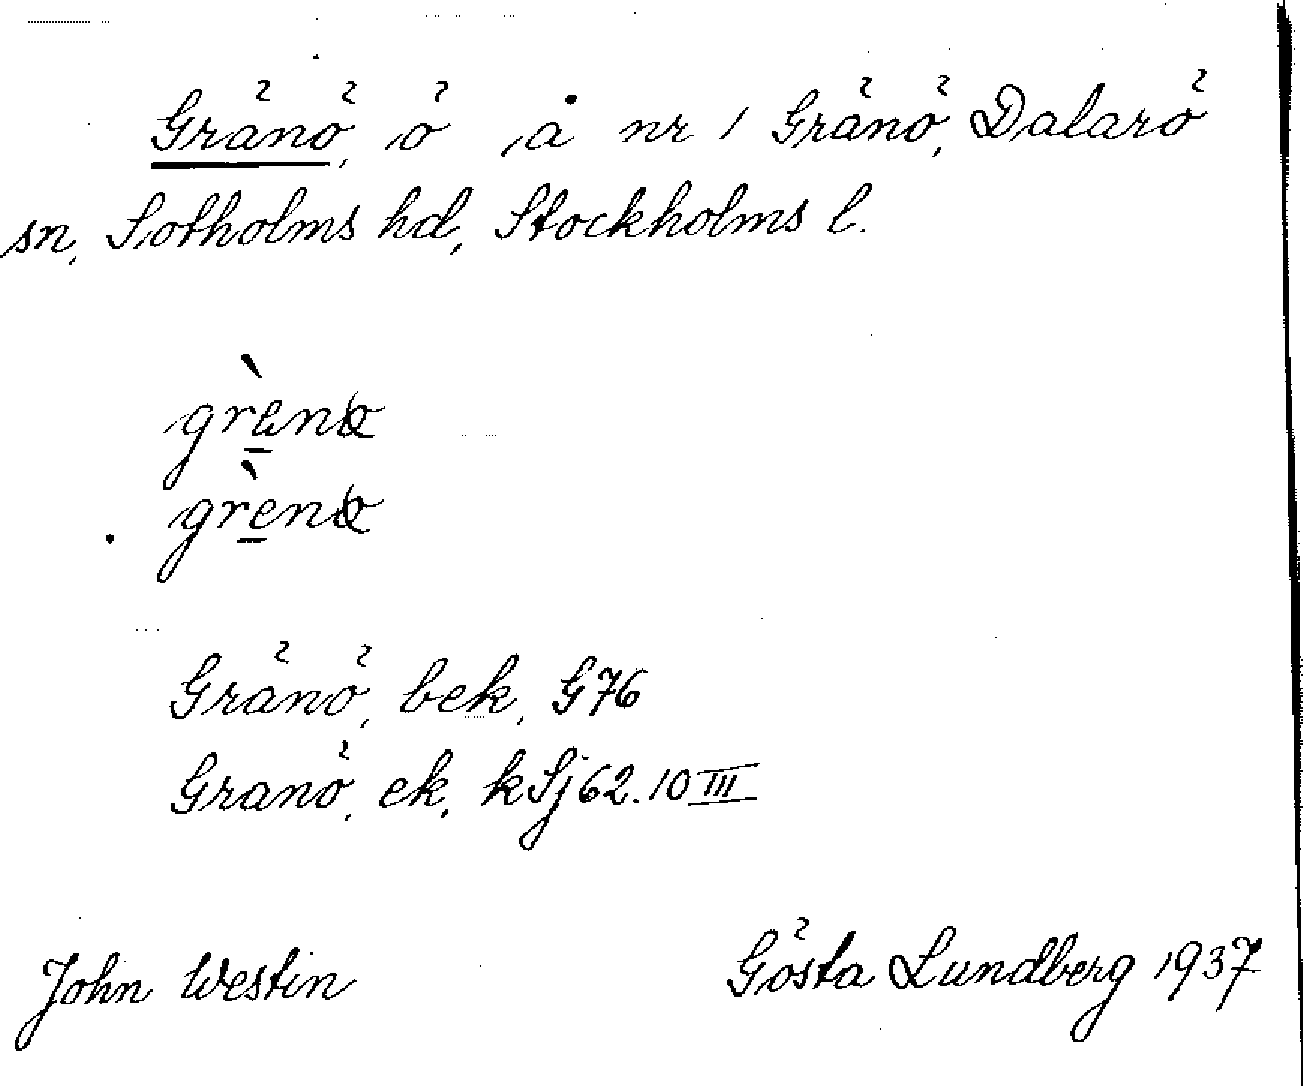 Gränö, ö, å nr 1 Gränö, Dalarö
sn, Sotholms hd, Stockholms l.
Gränö, bek, G76
Granö, ek, kSj62.10III
John Westin Gösta Lundberg 1937